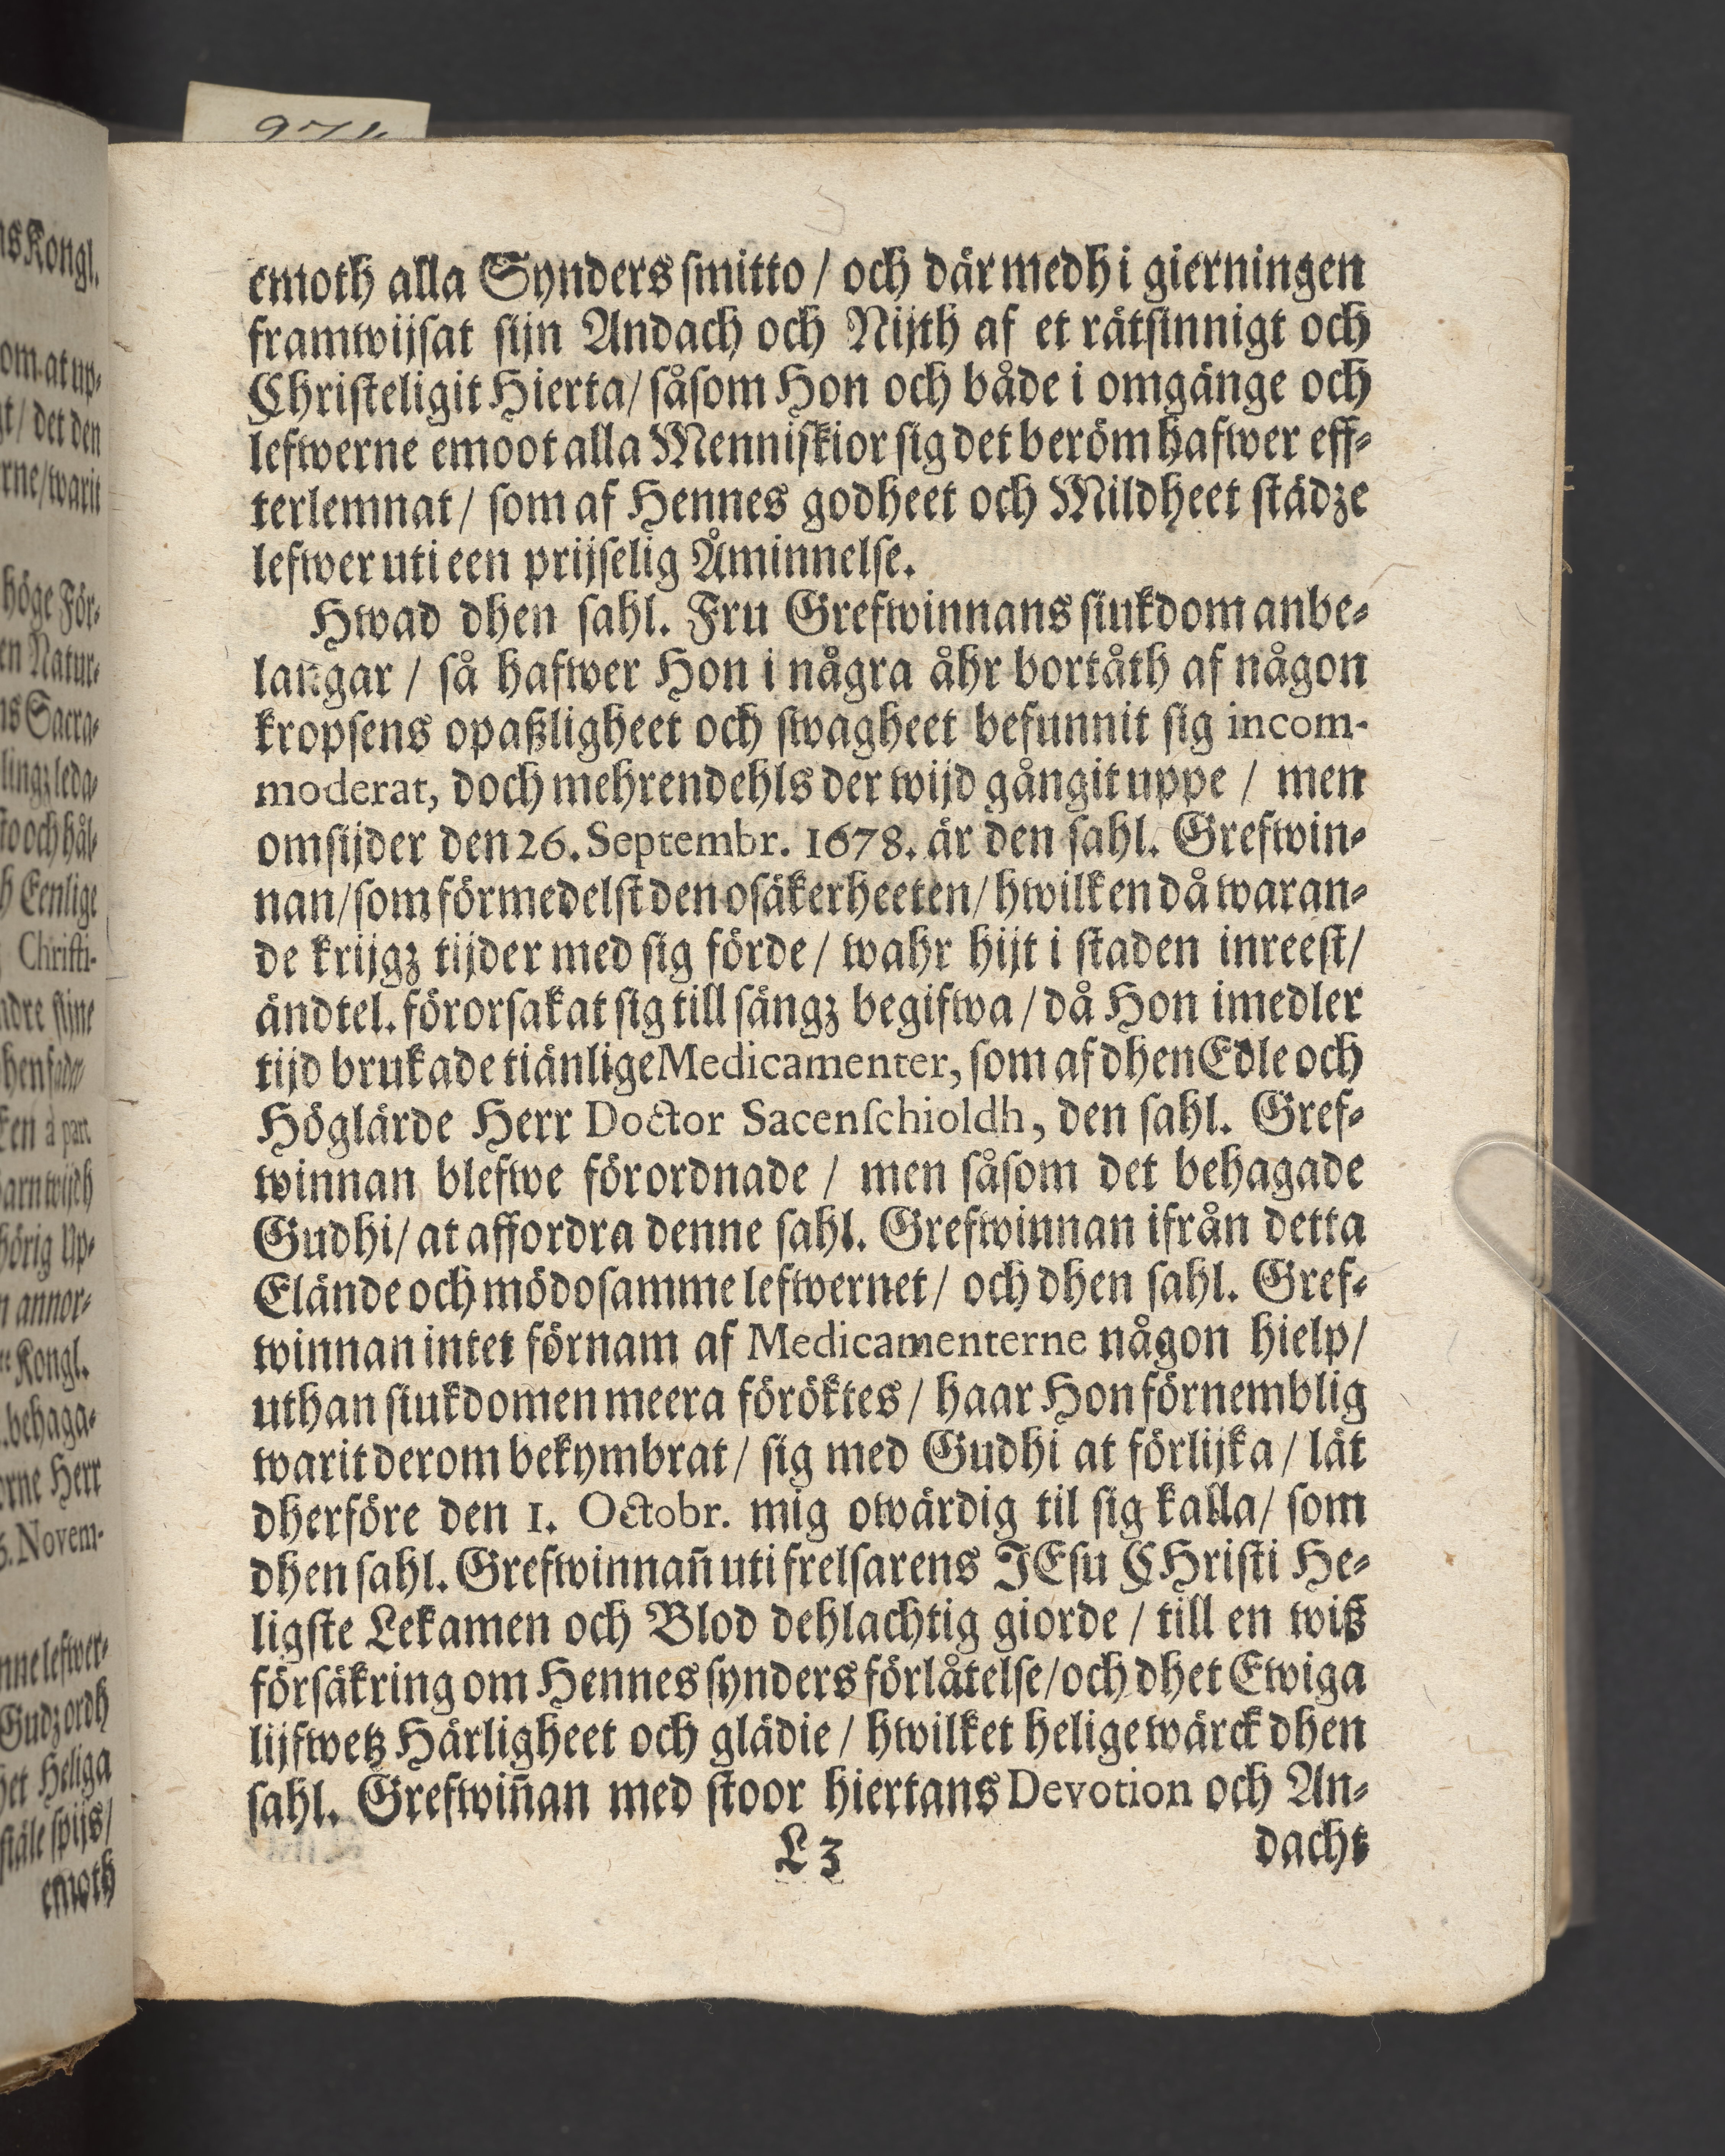 974
emoth alla Synders smitto / och där medh i gierningen
framwijsat sijn Andach och Nijth af et rätsinnigt och
Christeligit Hierta / såsom Hon och både i omgänge och
lefwerne emoot alla Menniskior sig det beröm hafwer eff-
terlemnat / som af Hennes godheet och Mildheet städze
lefwer uti een prijselig Åminnelse.
Hwad dhen sahl. Fru Grefwinnans siukdom anbe-
langar / så hafwer Hon i några åhr bortåth af någon
kropsens opaßligheet och swagheet befunnit sig incom-
moderat, doch mehrendehls der wijd gångit uppe / men
omsijder den 26. Septembr. 1678. är den sahl. Grefwin-
nan / som förmedelst den osäkerheeten / hwilken då waran-
de krijgz tijder med sig förde / wahr hijt i staden inreest /
ändtel. förorsakat sig till sängz begifwa / då Hon imedler
tijd brukade tiänlige Medicamenter, som af dhen Edle och
Höglärde Herr Doctor Sacenschioldh, den sahl. Gref-
winnan blefwe förordnade / men såsom det behagade
Gudhi / at affordra denne sahl. Grefwinnan ifrån detta
Elände och mödosamme lefwernet / och dhen sahl. Gref-
winnan intet förnam af Medicamenterne någon hielp /
uthan siukdomen meera föröktes / haar Hon förnemblig
warit derom bekymbrat / sig med Gudhi at förlijka / lät
dherföre den 1. Octobr. mig owärdig til sig kalla / som
dhen sahl. Grefwinnañ uti frelsarens JEsu CHristi He-
ligste Lekamen och Blod dehlachtig giorde / till en wiß
försäkring om Hennes synders förlåtelse / och dhet Ewiga
lijfwetz Härligheet och glädie / hwilket helige wärck dhen
sahl. Grefwiñan med stoor hiertans Devotion och An-
L 3 dacht
ns Kongl.
om at up-
gt / det den
rne / warit
höge För-
en Natur-
ns Sacra-
lingz leda-
to och hål-
h Eenlige
Christi-
ndre sijne
ken à part
barn wijdh
hörig Up-
n annor-
Kongl.
behaga-
orne Herr
5. Novem-
nne lefwer-
Gudz ordh
het Heliga
siäle spijs /
emoth